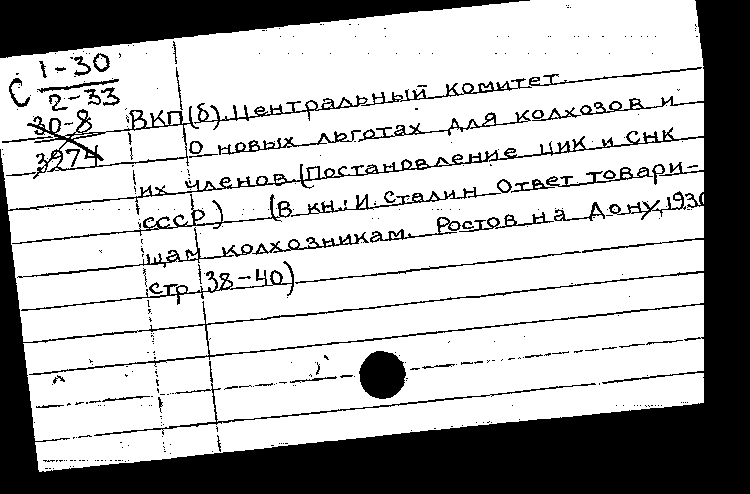 С 1-30
2-33
30-8
3974
ВКП(б). Центральный комитет.
О новых льготах для колхозов и
их членов. (Постановление ЦИК и СНК
СССР) (В кн.: И. Сталин Ответ товари-
щам колхозникам. Ростов на Дону, 1930
стр. 38-40)